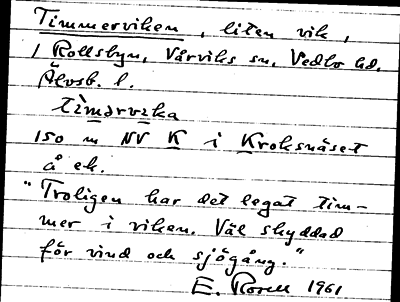 Timmerviken, liten vik,
i Rollsbyn, Vårviks sn, Vedbo hd.
Älvsb. l.
tìmərvika
150 m NV K i Kroksnäset
å ek.
"Troligen har det legat tim-
mer i viken. Väl skyddad
för vind och sjögång."
E. 1961